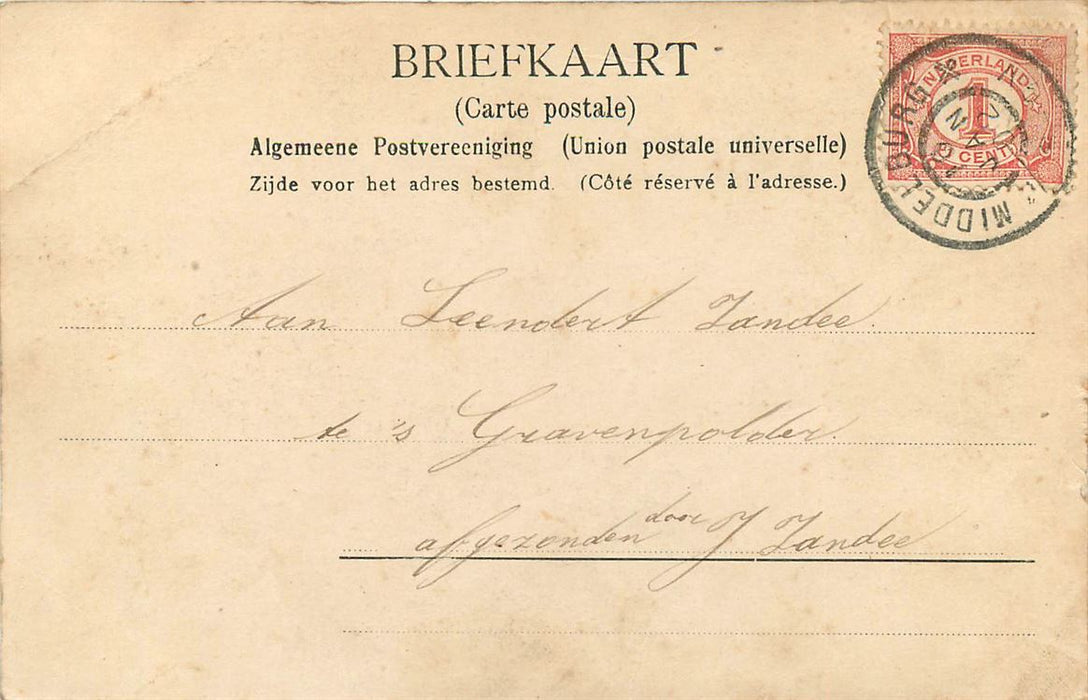 BRIEFKAART
(Carte postale)
Algemeene Postvereeniging (Union postale universelle)
Zijde voor het adres bestemd. (Côté réservé à l'adresse.)
NEDERLAND
1
CENT
MIDDELBURG
Aan Leendert Zandee.
te 's Gravenpolder.
afgezonden door J Zandee